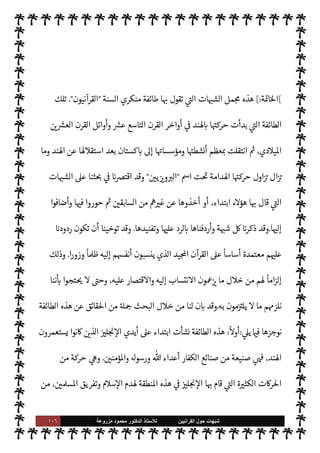 ]الخاتمة:[ هذه مجمل الشبهات التي تقول بها طائفة منكري السنة "القرآنيون". تلك
الطائفة التي بدأت حركتها بالهند في أواخر القرن التاسع عشر وأوائل القرن العشرين
الميلادي، ثم انتقلت بمعظم أنشطتها ومؤسساتها إلى باكستان بعد استقلالها عن الهند وما
تزال تزاول حركتها الهدامة تحت اسم "البرويزيين" وقد اقتصرنا في بحثنا على الشبهات
التي قال بها هؤلاء ابتداء، أو أخذوها عن غيرهم من السابقين ثم حوروا فيها وأضافوا
إليها.وقد ذكرنا كل شبهة وأردفناها بالرد عليها وتفنيدها. وقد توخينا أن تكون ردودنا
عليهم معتمدة أساساً على القرآن المجيد الذي ينسبون أنفسهم إليه ظلماً وزورا. وذلك
إلزاماً لهم من خلال ما يزعمون الانتساب إليه والاقتصار عليه، وحتى لا يحتجوا بأننا
نلزمهم ما لا يلتزمون به.وقد بان لنا من خلال البحث جملة من الحقائق عن هذه الطائفة
نوجزها فيما يلي:أولاً: هذه الطائفة نشأت ابتداء على أيدي الإنجليز الذين كانوا يستعمرون
الهند، فهي صنيعة من صنائع الكفار أعداء الله ورسوله والمؤمنين. وهي حركة من
الحركات الكثيرة التي قام بها الإنجليز في هذه المنطقة لهدم الإسلام وتفريق المسلمين، من
شبهات حول القرآنيين للأستاذ الدكتور محمود مزروعة ١٠٦